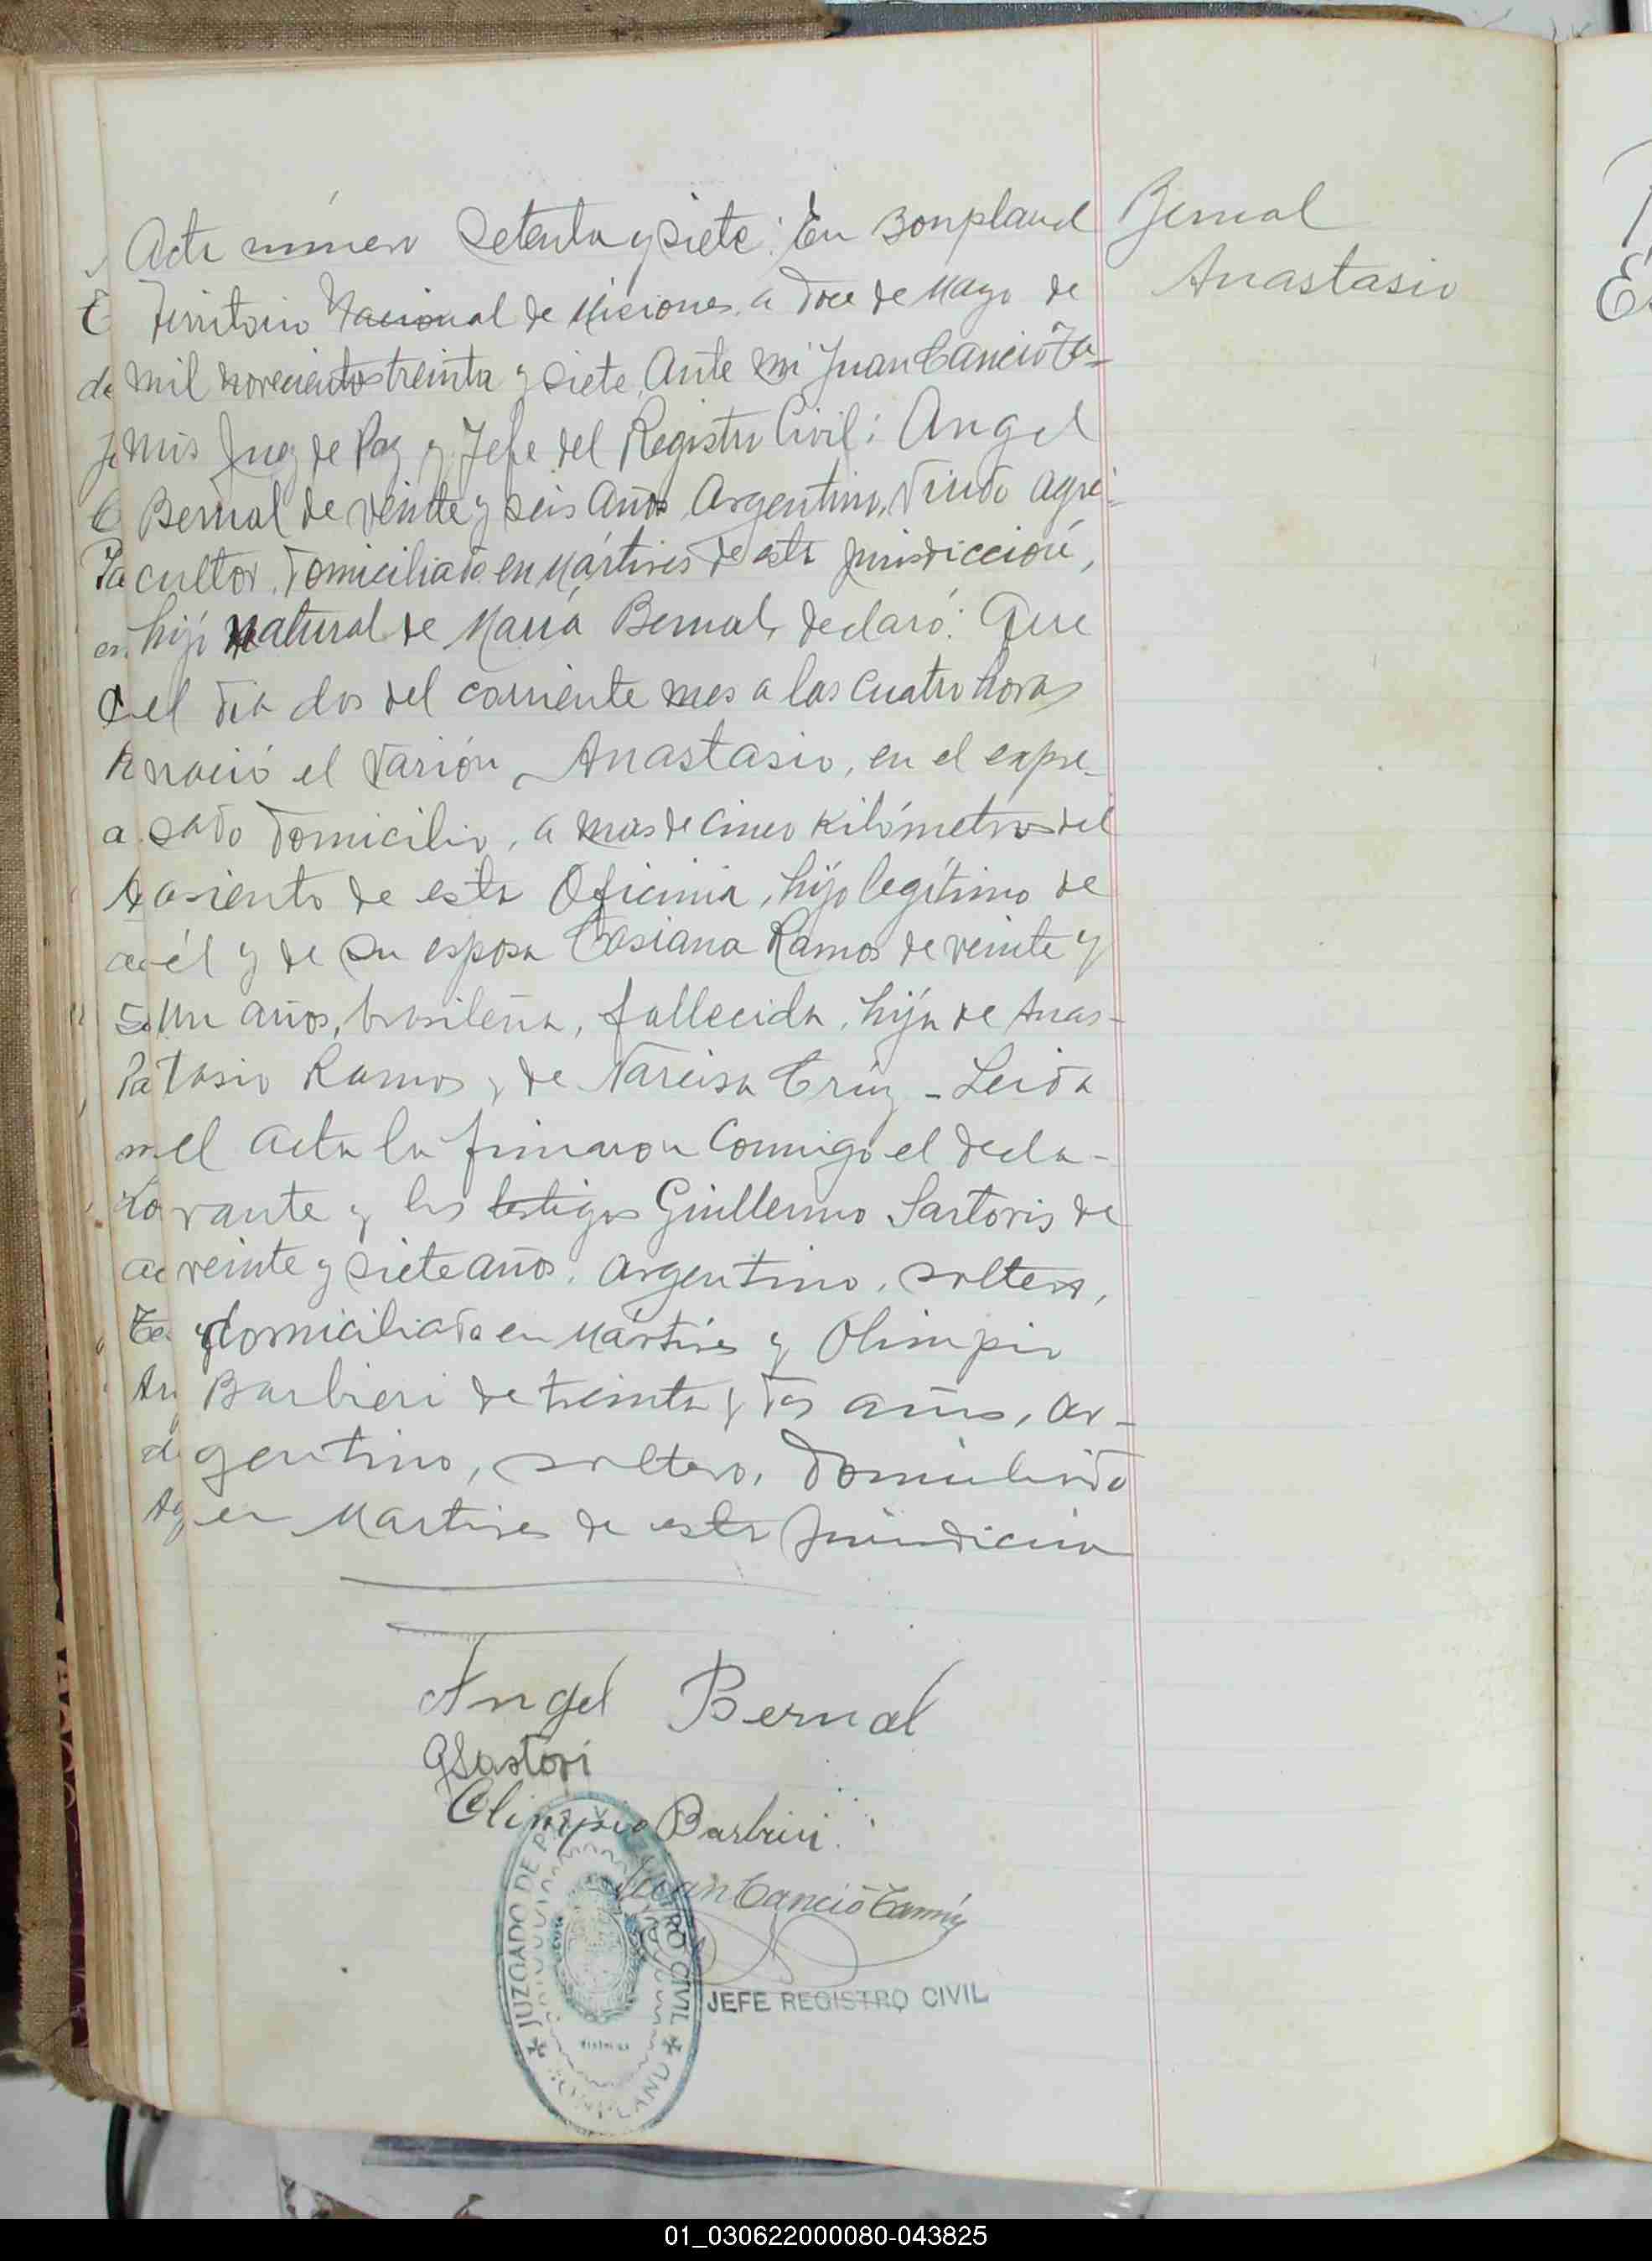 Acta número setenta y siete: En Bonpland
Territorio Nacional de Misiones, a doce de Mayo de
mil novecientos treinta y siete, Ante mi Juan Cancio Ta-
mis Juez de Paz y Jefe del Registro Civil: Angel
Bernal de veinte y seis años, Argentino, viudo agri-
cultor, domiciliado en Mártires de esta jurisdicción,
hijo natural de María Bernal, declaró: Que
el dia dos del corriente mes a las cuatro horas
nació el varión Anastasio, en el expre-
sado domicilio, a mas de cinco kilómetros del
asiento de esta Oficinia, hijo legítimo de
él y de su esposa Casiana Ramos de veinte y
un años, brasileña, fallecida, hija de Anas-
tasio Ramos y de Narcisa Cruz - Leida
el acta la firmaron conmigo el decla-
rante y los testigos Guillermo Sartoris de
veinte y siete años, argentino, soltero,
domiciliado en Mártires y Olimpio
Barbieri de treinta y dos años, ar-
gentino, soltero, domiciliado
en Martires de esta jurisdicion
Bernal
Anastasio
Angel Bernal
G Sartori
Olimpio Barbieri
Juan Cancio Tamis
JEFE REGISTRO CIVIL
JUZGADO DE P
TRO CIVIL
BONPLAND
01_030622000080-043825